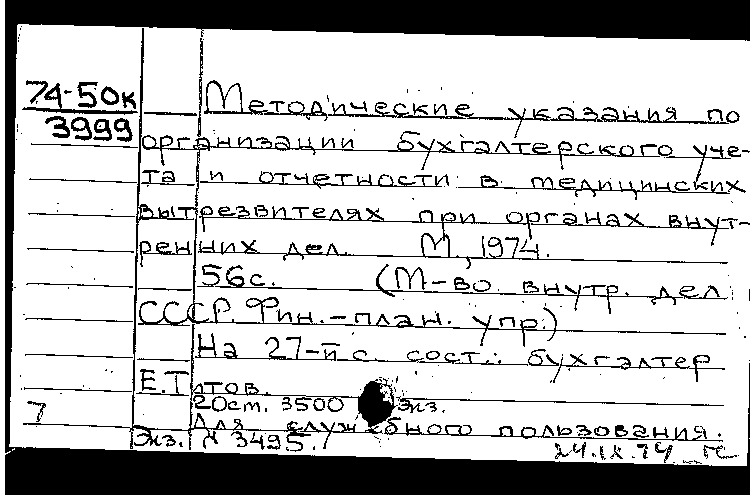 74-50к
3999
Методические указания по
организации бухгалтерского уче-
та и отчетности в медицинских
вытрезвителях при органах внут-
ренних дел. М., 1974.
56 с. (М-во внутр. дел
СССР. Фин.-план. упр.)
На 27-й с. сост.: бухгалтер
Е.Т
20 см. 3500 экз.
7 Для служебного пользования.
Экз. N 3495.
24.IX.74